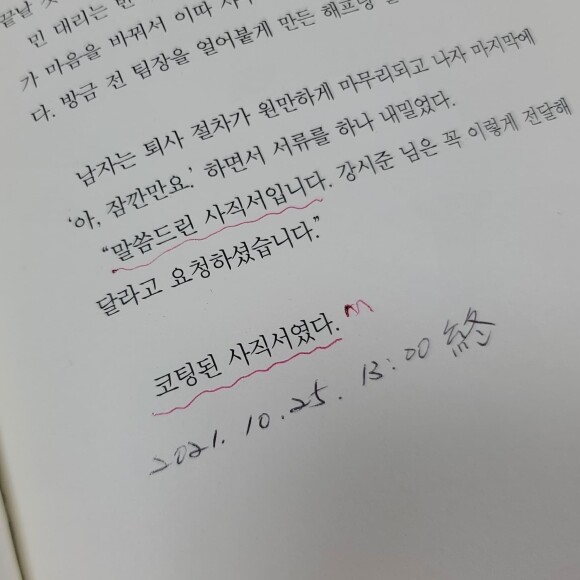 끝날 것
민 대리는 반
가 마음을 바꿔서 이따
다. 방금 전 팀장을 얼어붙게 만든 해프닝
남자는 퇴사 절차가 원만하게 마무리되고 나자 마지막에
‘아, 잠깐만요.’ 하면서 서류를 하나 내밀었다.
“말씀드린 사직서입니다. 강시준 님은 꼭 이렇게 전달해
달라고 요청하셨습니다.”
코팅된 사직서였다.
2021. 10. 25. 13:00 終